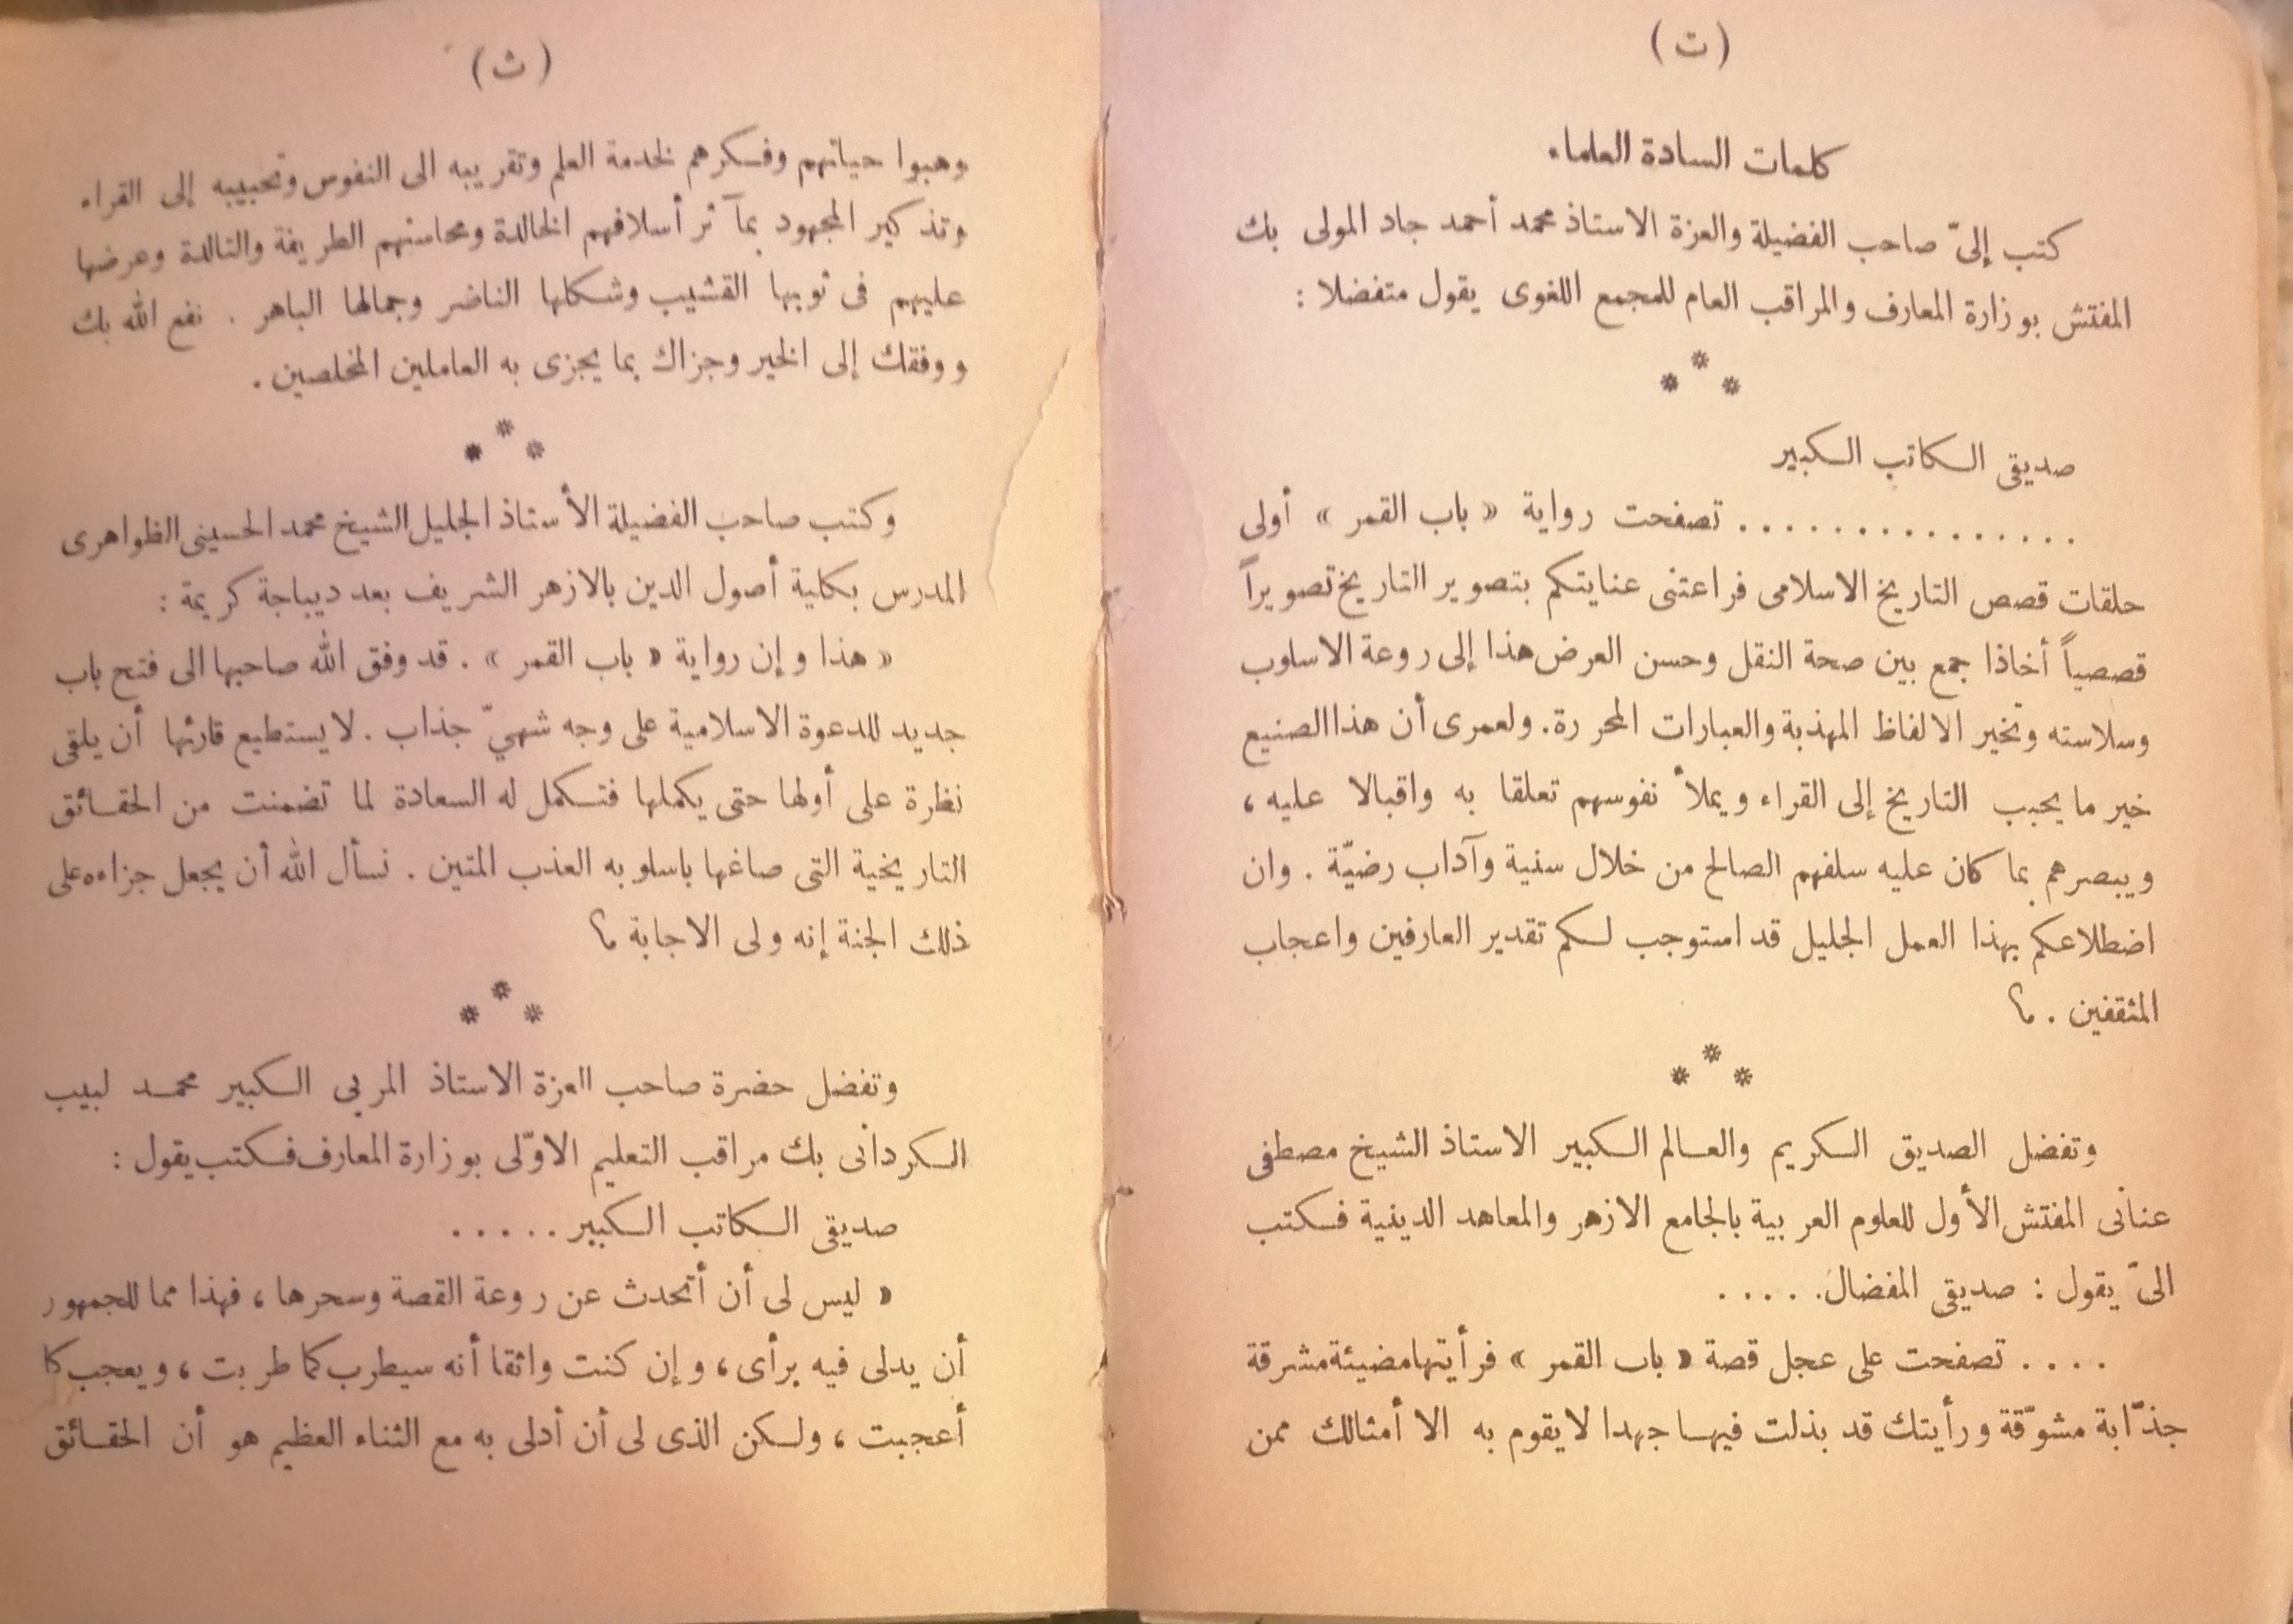 (ت)
كلمات السادة العلماء
كتب إلىّ صاحب الفضيلة والعزة الاستاذ محمد أحمد جاد المولى بك
المفتش بوزارة المعارف والمراقب العام للمجمع اللغوى يقول متفضلا :
* * *
صديقى الكاتب الكبير
. . . . . . . . . . . . . . . تصفحت رواية « باب القمر » أولى
حلقات قصص التاريخ الاسلامى فراعتنى عنايتكم بتصوير التاريخ تصويراً
قصصياً أخاذا جمع بين صحة النقل وحسن العرض هذا إلى روعة الاسلوب
وسلاسته وتخير الالفاظ المهذبة والعبارات المحررة. ولعمرى أن هذا الصنيع
خير ما يحبب التاريخ إلى القراء ويملأ نفوسهم تعلقا به واقبالا عليه ،
ويبصرهم بما كان عليه سلفهم الصالح من خلال سنية وآداب رضيّة . وان
اضطلاعكم بهذا العمل الجليل قد استوجب لكم تقدير العارفين واعجاب
المثقفين . ؟
* * *
وتفضل الصديق الكريم والعالم الكبير الاستاذ الشيخ مصطفى
عنانى المفتش الأول للعلوم العربية بالجامع الازهر والمعاهد الدينية فكتب
الىّ يقول : صديقى المفضال. . . . .
. . . . تصفحت على عجل قصة « باب القمر » فرأيتها مضيئة مشرقة
جذّابة مشوّقة ورأيتك قد بذلت فيها جهدا لا يقوم به الا أمثالك ممن
(ث)
وهبوا حياتهم وفكرهم لخدمة العلم وتقريبه الى النفوس وتحبيبه إلى القراء
وتذكير المجهود بمآثر أسلافهم الخالدة ومحاسنهم الطريفة والتالدة وعرضها
عليهم فى ثوبها القشيب وشكلها الناضر وجمالها الباهر . نفع الله بك
ووفقك إلى الخير وجزاك بما يجزى به العاملين المخلصين .
* * *
وكتب صاحب الفضيلة الأستاذ الجليل الشيخ محمد الحسينى الظواهرى
المدرس بكلية أصول الدين بالازهر الشريف بعد ديباجة كريمة :
« هذا وإن رواية « باب القمر » . قد وفق الله صاحبها الى فتح باب
جديد للدعوة الاسلامية على وجه شهيّ جذاب . لا يستطيع قارئها أن يلقى
نظرة على أولها حتى يكملها فتكمل له السعادة لما تضمنت من الحقائق
التاريخية التى صاغها باسلوبه العذب المتين . نسأل الله أن يجعل جزاءه على
ذلك الجنة إنه ولى الاجابة ؟
* * *
وتفضل حضرة صاحب العزة الاستاذ المربى الكبير محمد لبيب
الكردانى بك مراقب التعليم الاوّلى بوزارة المعارف فكتب يقول :
صديقى الكاتب الكبير . . . . .
« ليس لى أن أتحدث عن روعة القصة وسحرها ، فهذا مما للجمهور
أن يدلى فيه برأى ، وإن كنت واثقا أنه سيطرب كما طربت ، ويعجب كا
أعجبت ، ولكن الذى لى أن أدلى به مع الثناء العظيم هو أن الحقائق